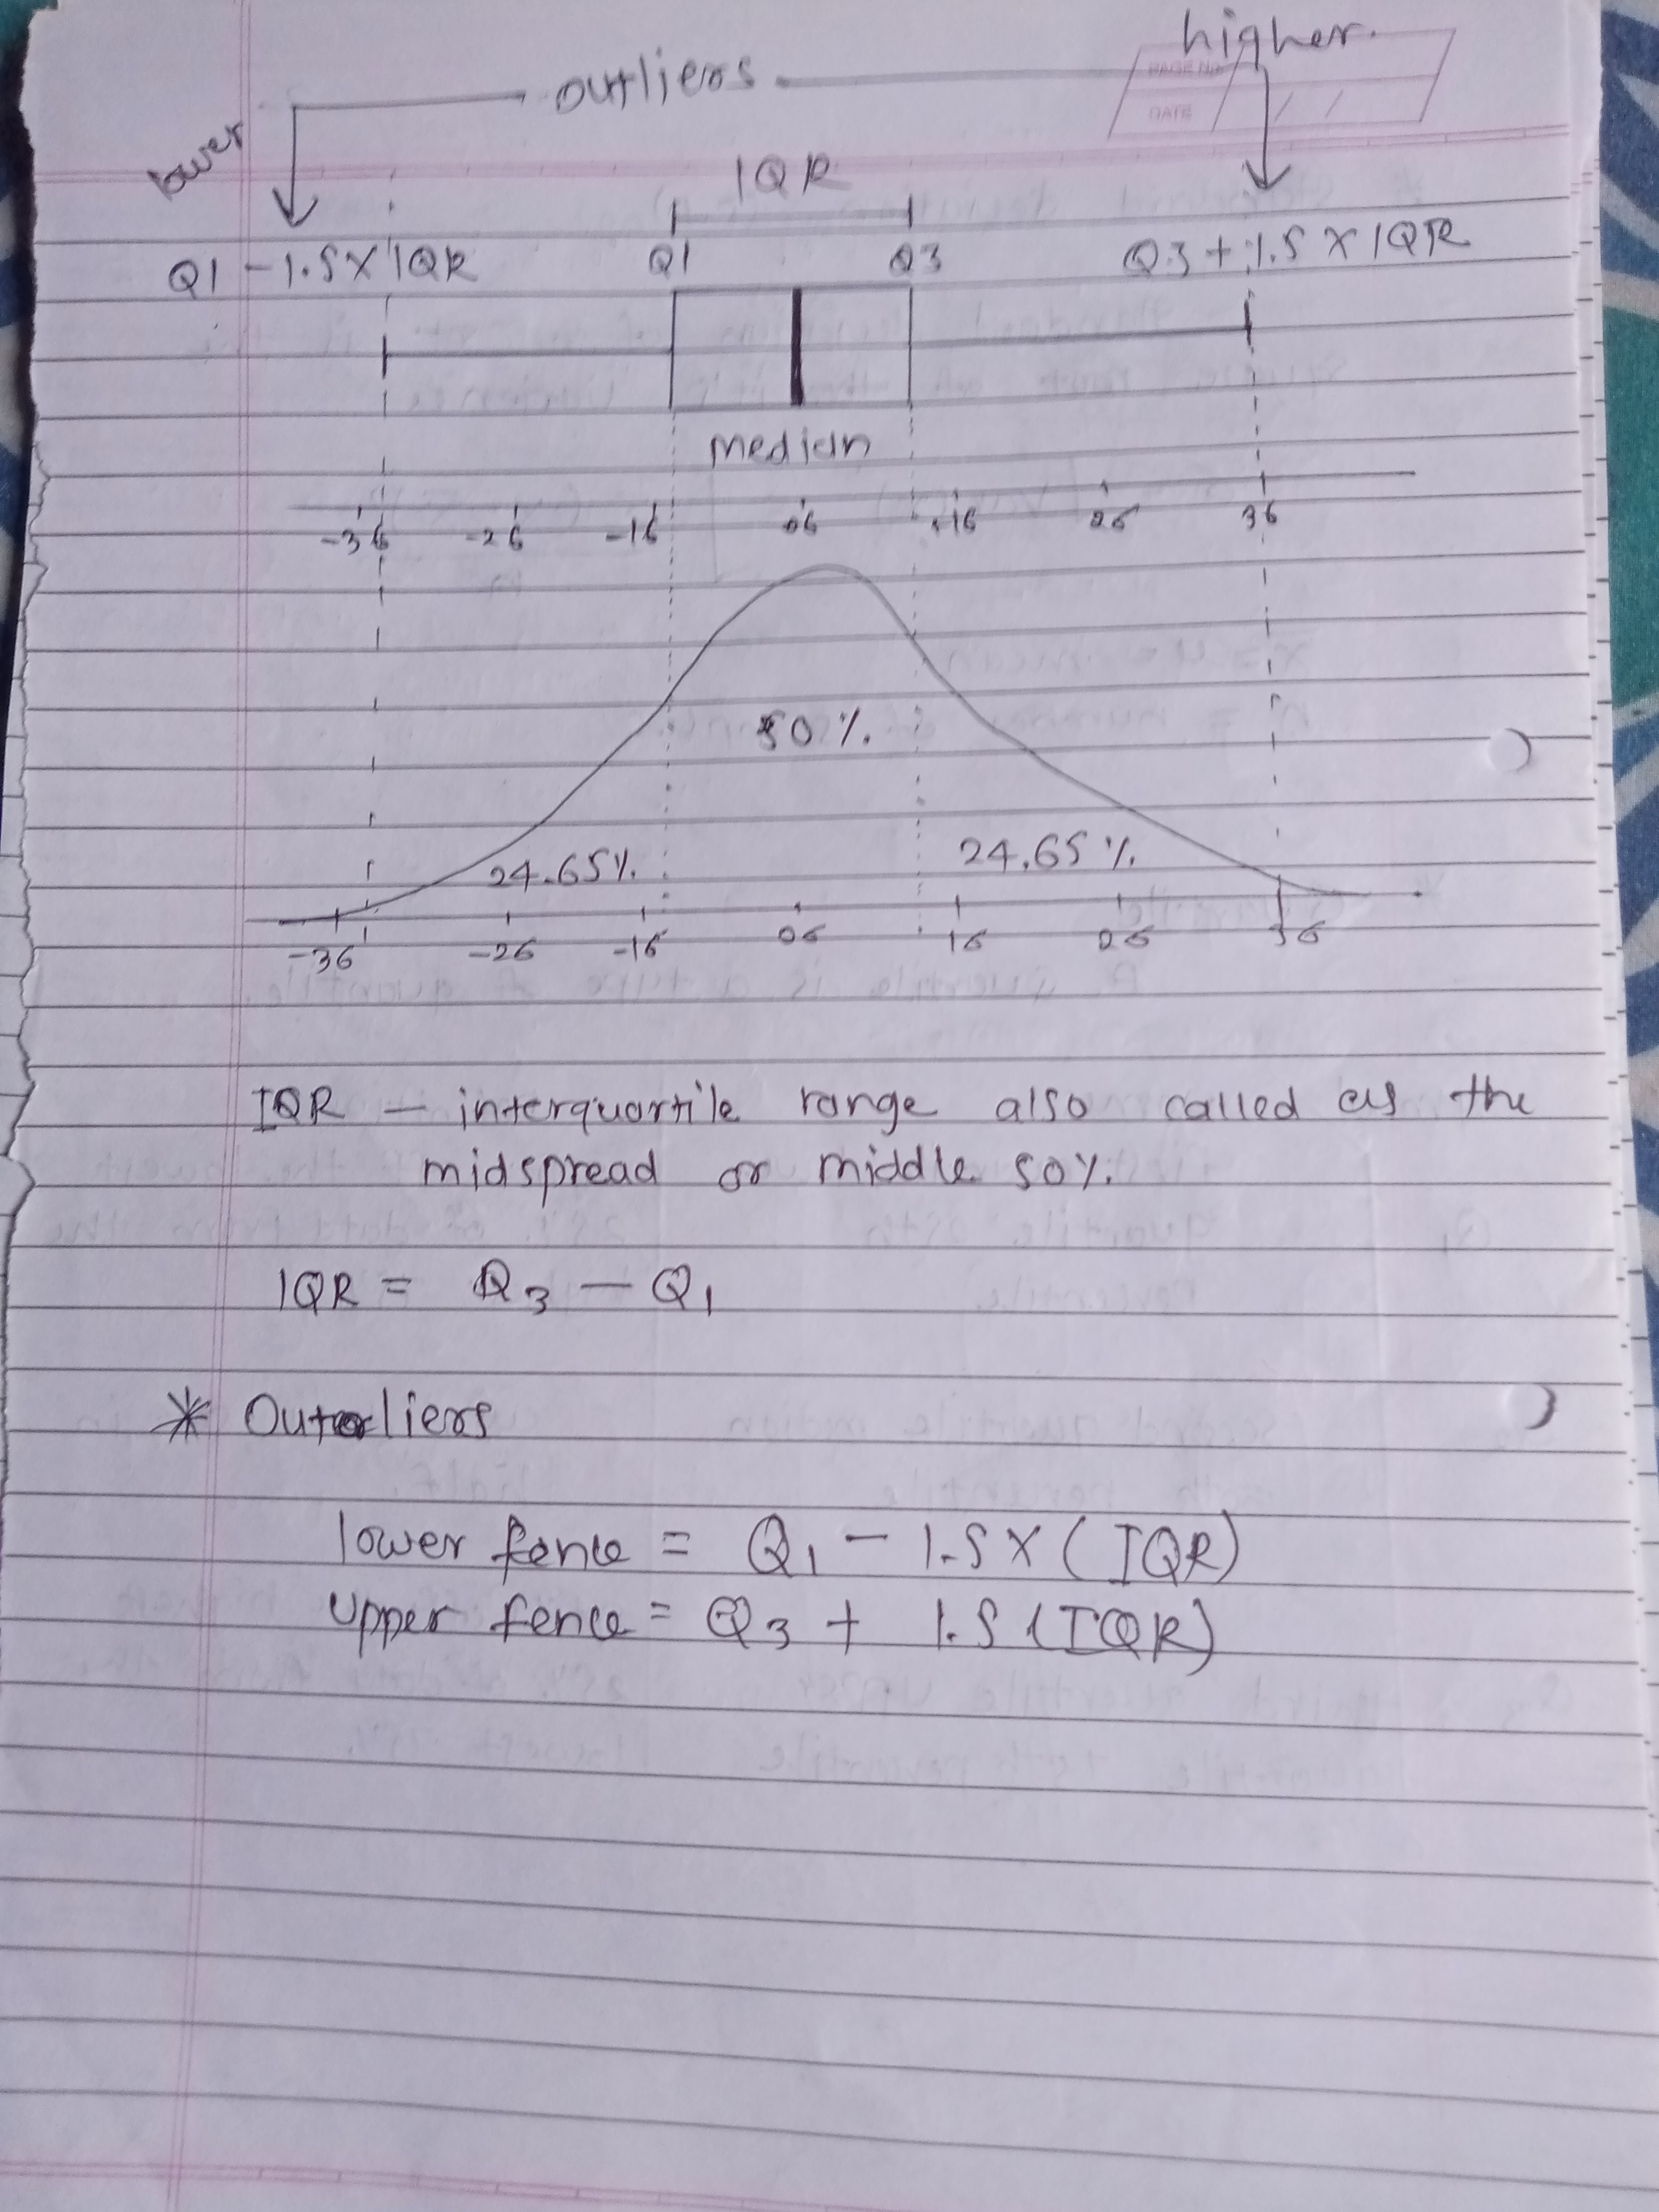 higher.
outliers
PAGE No.
DATE
lower
IQR
Q1 - 1.5 X IQR Q1 Q3 Q3 + 1.5 X IQR
median
-3б -2б -1б 0б +1б 2б 3б
50%.
24.65%. 24.65%.
-3б -2б -1б 0б 1б 2б 3б
IQR — interquartile range also called as the
midspread or middle 50%.
IQR = Q3 — Q1
* Outliers
lower fence = Q1 — 1.5 X (IQR)
Upper fence = Q3 + 1.5 (IQR)